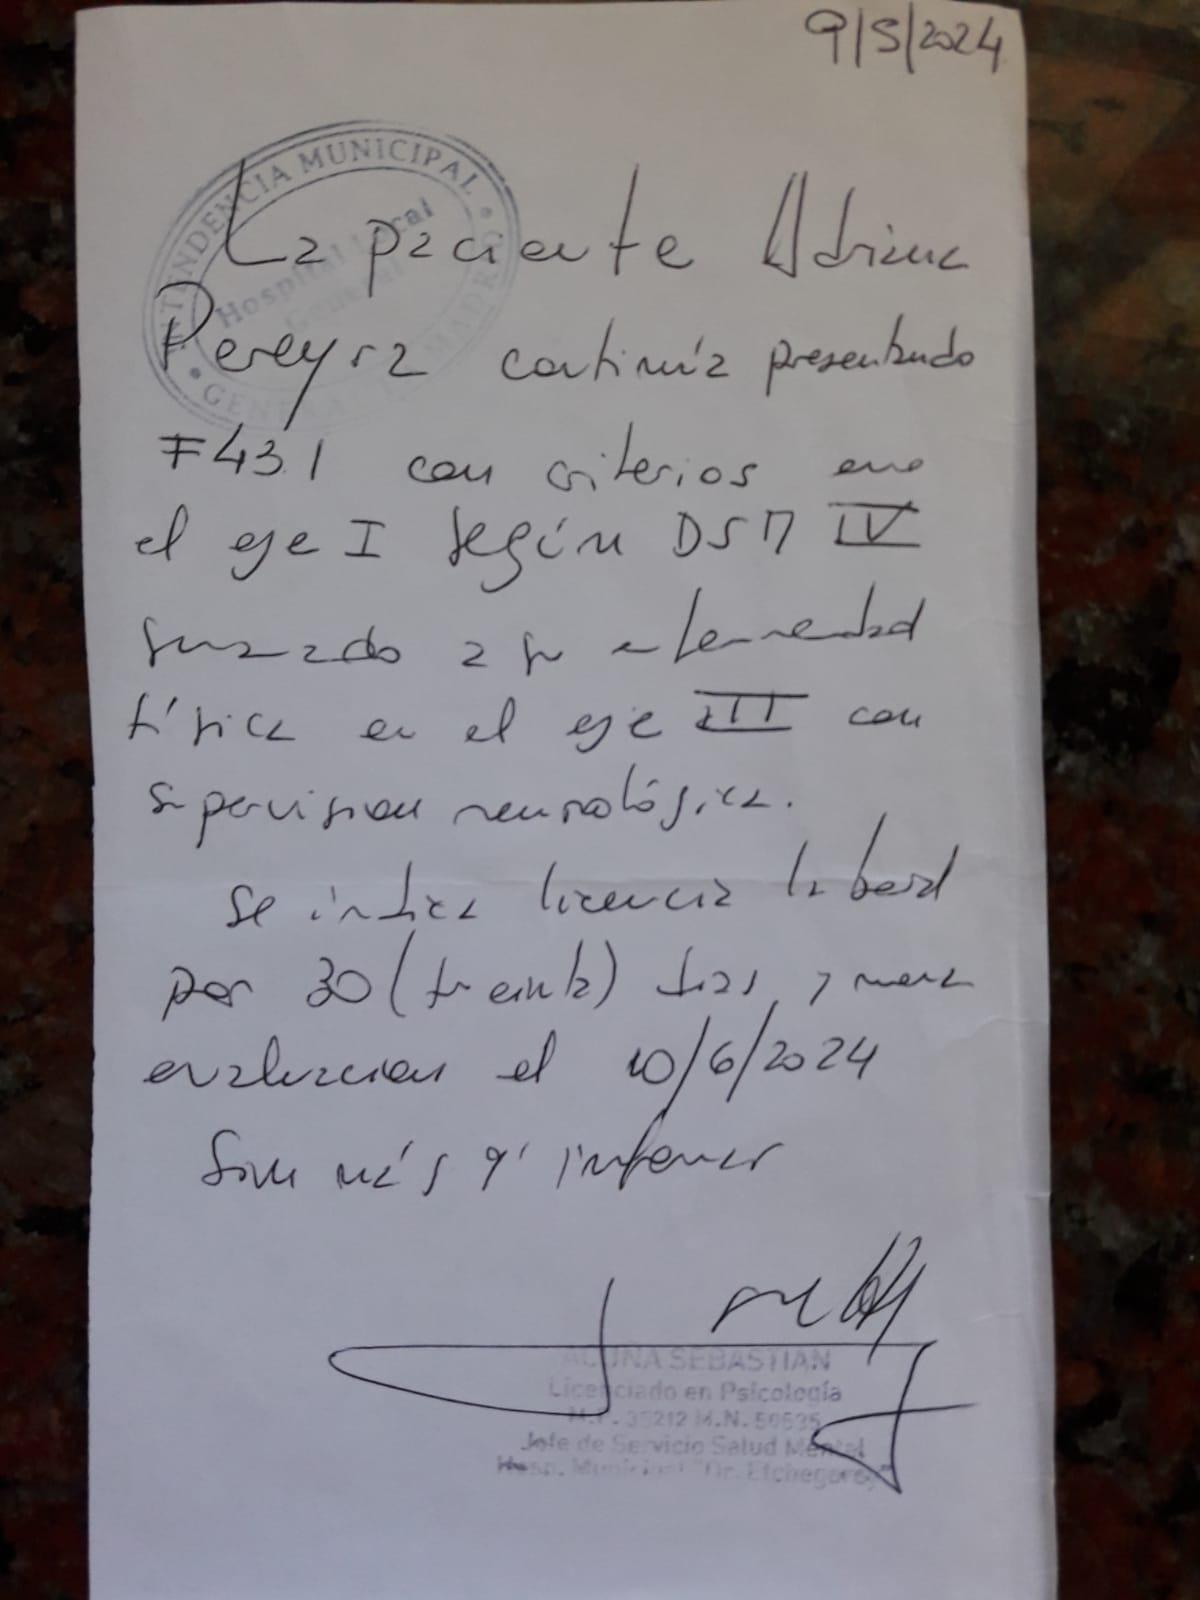 9/5/2024
INTENDENCIA MUNICIPAL
Hospital Local
General
GENERAL MADR
La paciente Adriana
Pereyra continúa presentando
F43.1 con criterios en
el eje I según DSM IV
sumado a su enfermedad
física en el eje III con
supervision neurológica.
Se indica licencia laboral
por 30 (treinta) días, y nueva
evaluacion el 10/6/2024
Sin más q' informar
ACUÑA SEBASTIAN
Licenciado en Psicología
M.P. 35212 M.N. 50535
Jefe de Servicio Salud Mental
Hosp. Municipal "Dr. Etchegaray"